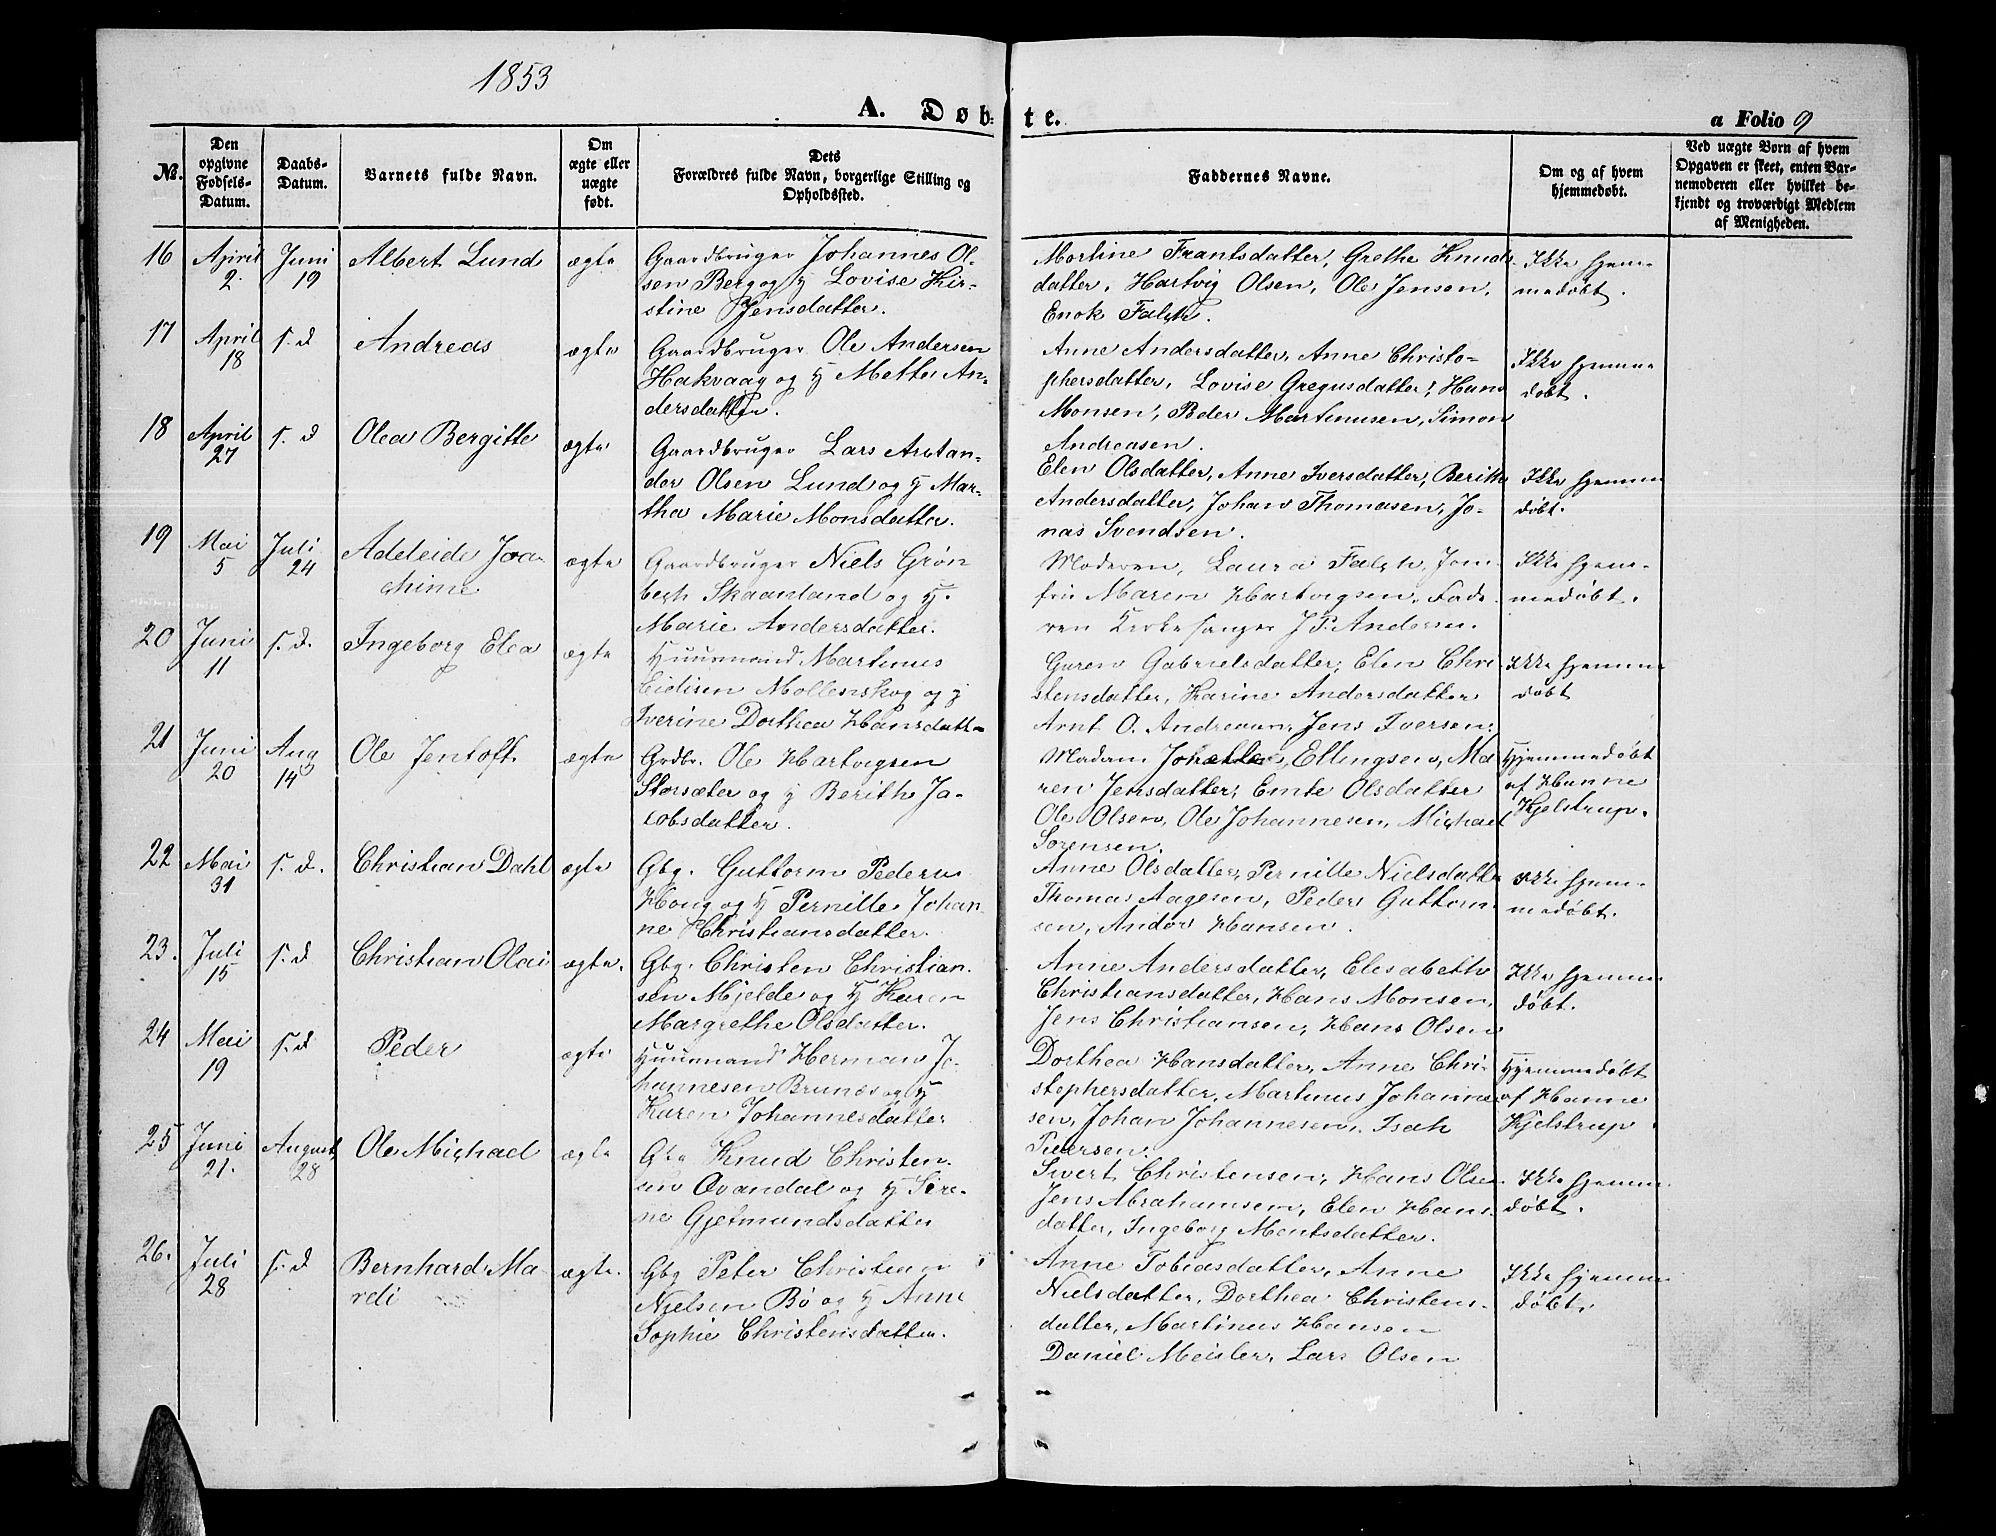 1853
A. Døbte.
a Folio 9
No.
Den opgivne Fødsels-Datum.
Daabs-Datum.
Barnets fulde Navn.
Om ægte eller uægte født.
Dets Forældres fulde Navn, borgerlige Stilling og Opholdssted.
Faddernes Navne.
Om og af hvem hjemmedøbt.
Ved uægte Børn af hvem Opgaven er skeet, enten Barnemoderen eller hvilket bekjendt og troværdigt Medlem af Menigheden.
16 April 2. Juni 19 Albert Lund ægte
Gaardbruger Johannes Ol-
sen Berg og H Lovise Kir-
stine Jensdatter.
Martine Frantsdatter, Grethe Knuds-
datter, Hartvig Olsen, Ole Jensen,
Enok Falch.
Ikke hjem-
medøbt.
17 April 18 s. d Andreas ægte
Gaardbruger Ole Andersen
Hakvaag og H Mette An-
dersdatter.
Anne Andersdatter, Anne Christo-
phersdatter, Lovise Gregusdatter, Hans
Monsen, Peder Martinusen, Simon
Andreasen.
Ikke hjemme
døbt.
18 April 27 s. d Olea Bergitte ægte
Gaardbruger Lars Arctan-
der Olsen Lund og H Mar-
tha Marie Monsdatter.
Elen Olsdatter, Anne Iversdatter, Berith
Andersdatter, Johan Thomasen, Jo-
nas Svendsen.
Ikke hjemme
døbt.
19 Mai 5 Juli 24 Adeleide Joa-
chime ægte
Gaardbruger Niels Grøn
bech Skaanland og H.
Marie Andersdatter.
Moderen, Laura Falch, Jom-
fru Maren Hartvigsen, Fade-
ren Kirkesanger J P. Andersen.
Ikke hjem-
medøbt.
20 Juni 11 s. d. Ingeborg Elea ægte
Huusmand Martinus
Eidisen Mollenskog og H
Iverine Dorthea Hansdatt-
Guren Gabrielsdatter, Elen Chri-
stensdatter, Karine Andersdatter
Arnt O. Andreasen, Jens Iversen.
Ikke hjemme
døbt
21 Juni 20 Aug 14 Ole Jentoft ægte
Grdbr. Ole Hartvigsen
Storsæter og H Berith Ja-
cobsdatter.
Madam Ellingsen, Ma-
ren Jensdatter, Emte Olsdatter
Ole Olsen, Ole Johannesen, Michael
Sorensen.
Hjemmedøbt
af Hanne
Kjelstrup.
22 Mai 31 s. d. Christian Dahl ægte
Gbg. Guttorm Peders
Houg og H Pernille Johan
ne Christiansdatter.
Anne Olsdatter, Pernille Nielsdatt-
Thomas Aagesen, Peder Guttorm-
sen, Andor Hansen.
Ikke hjem-
medøbt.
23. Juli 15 s. d Christian Olai ægte.
Gbg. Christen Christian-
sen Mjelde og H Karen
Margrethe Olsdatter.
Anne Andersdatter, Elesabeth
Christiansdatter, Hans Monsen,
Jens Christiansen, Hans Olsen
Ikke hjemme
døbt.
24 Mai 19 s. d Peder ægte
Huusmand Herman Jo-
hannesen Brunæs og H
Karen Johannesdatter
Dorthea Hansdatter, Anne Chri-
stophersdatter, Martinus Johanne-
sen, Johan Johannesen, Isak
Pedersen.
Hjemmedøbt
af Hanne
Kjelstrup.
25 Juni 21. August 28 Ole Michael ægte
Knud Christen
sen Qvandal og H Sere-
ne Gjetmundsdatter
Sivert Christensen, Hans Olse
Jens Abrahamsen, Elen Hans-
datter, Ingeborg Montsdatter.
Ikke hjemme
døbt.
26. Juli 28 s. d Bernhard Ma-
rdi ægte.
Gbg Peter Christian
Nielsen Bø og H Anne
Sophie Christensdatter.
Anne Tobiasdatter, Anne
Nielsdatter, Dorthea Christens-
datter, Martinus Hansen
Daniel Meisler, Lars Olsen
Ikke hjemme
døbt.